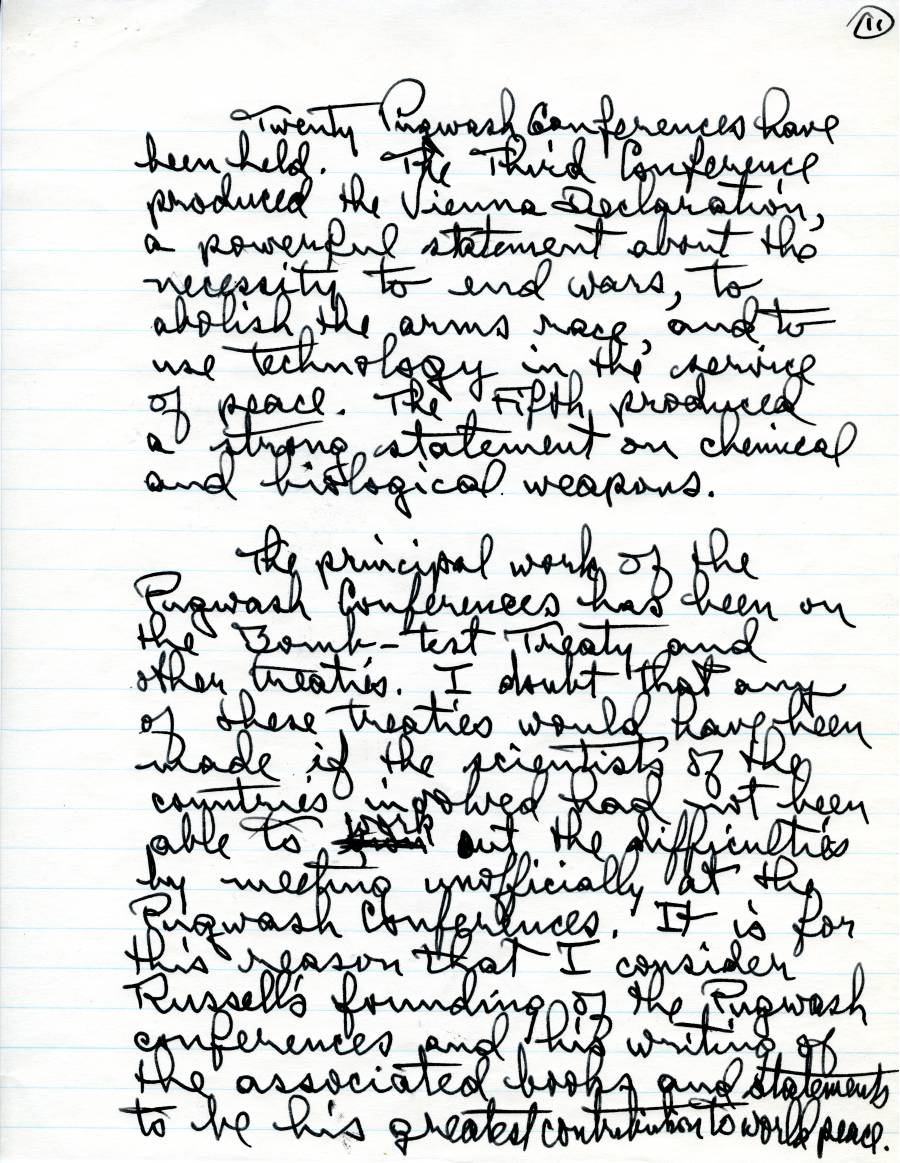 11
Twenty Pugwash Conferences have
been held. The Third Conference
produced the Vienna Declaration,
a powerful statement about the
necessity to end wars, to
abolish the arms race, and to
use technology in the service
of peace. The Fifth produced
a strong statement on chemical
and biological weapons.
The principal work of the
Pugwash Conferences has been on
the Bomb-test Treaty and
other treaties. I doubt that any
of these treaties would have been
made if the scientists of the
countries involved had not been
able to work out the difficulties
by meeting unofficially at the
Pugwash Conferences. It is for
this reason that I consider
Russell's founding of the Pugwash
conferences and his writing of
the associated books and statements
to be his greatest contribution to world peace.